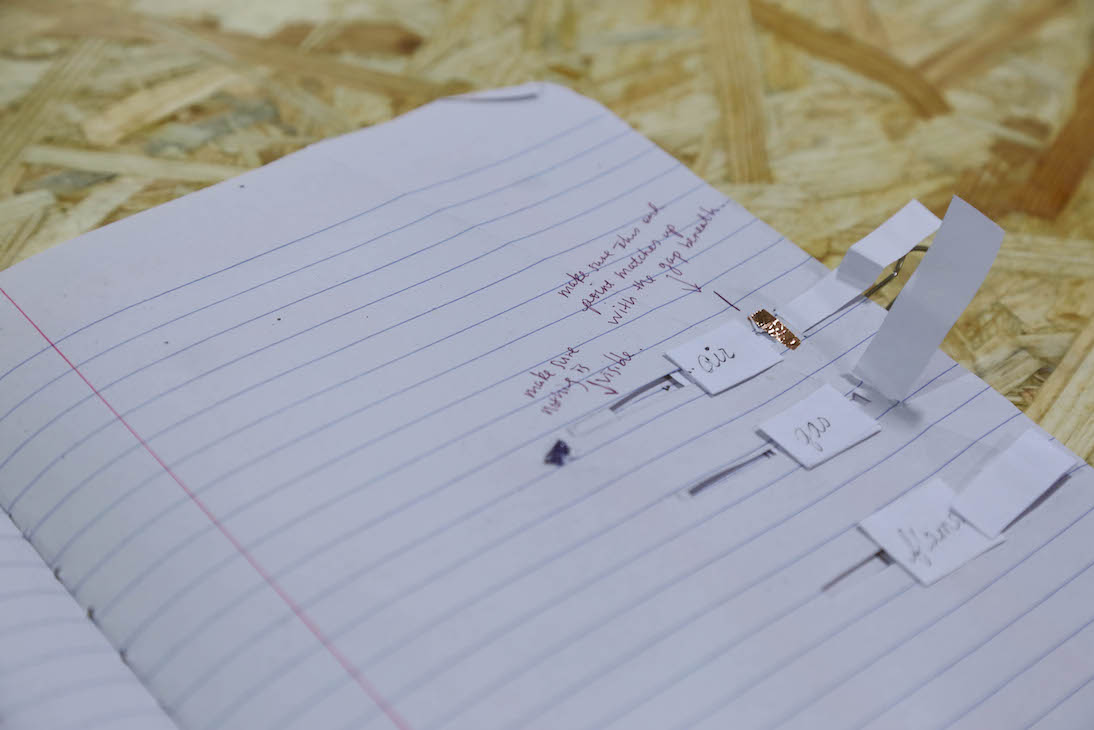 make sure this end
point matches up
with the gap beneath
make sure
nothing is
visible.
air
gas